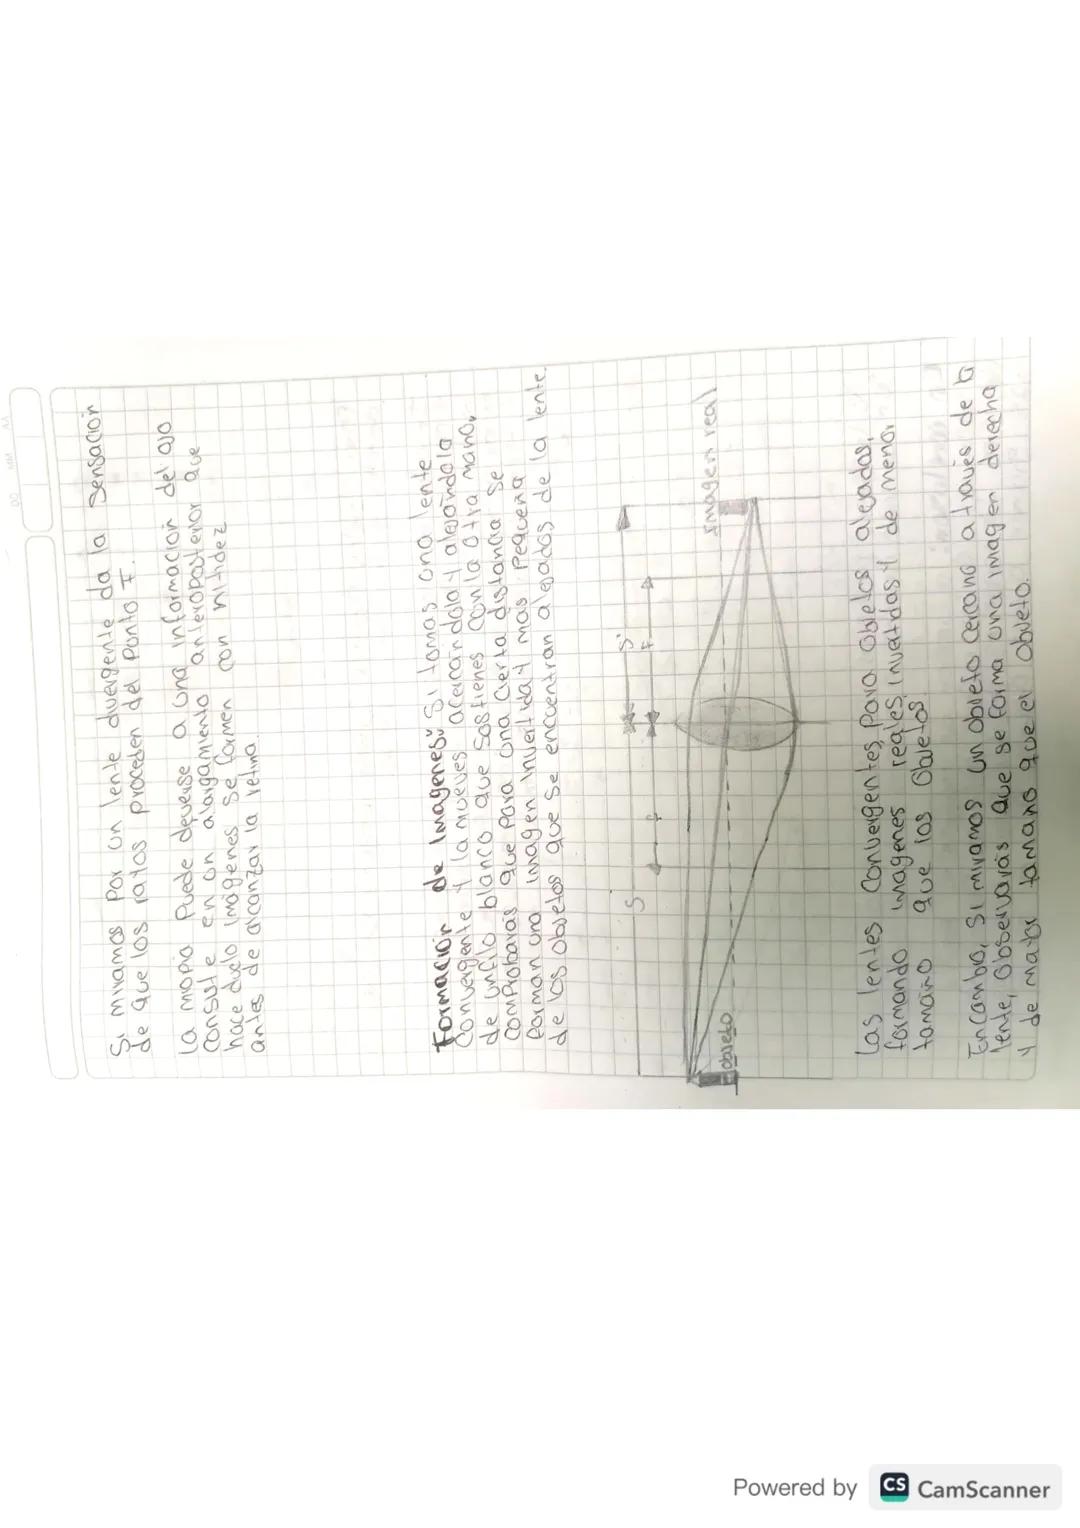 DD MM AA
Si miramos por un lente divergente da la sensación
de que los ratos proceden del Ponto F.
la miopia Puede deverse a una informacion del ojo
consute en un alargamiento anteroposterior que
hace dudo imágenes se formen con nitidez
antes de alcanzar la retina.
Formación de Imagenes: Si tomas una lente
convergente y la mueves acercandola y alejándola
de unfilo blanco que sostienes con la otra mano,
comprobarás que para una cierta distancia se
forman una imagen invertida y mas pequeña
de los objetos que se encuentran alejados de la lente.
S S'
F F
objeto
Imagen real
Las lentes Convergentes, para Objetos alejados,
formando imagenes reales, invertidas y de menor
tamaño que los Objetos
En cambio, si miramos un objeto cercano a través de la
lente, observarás que se forma una imagen derecha
y de mator tamaño que el Objeto.
Powered by CS CamScanner